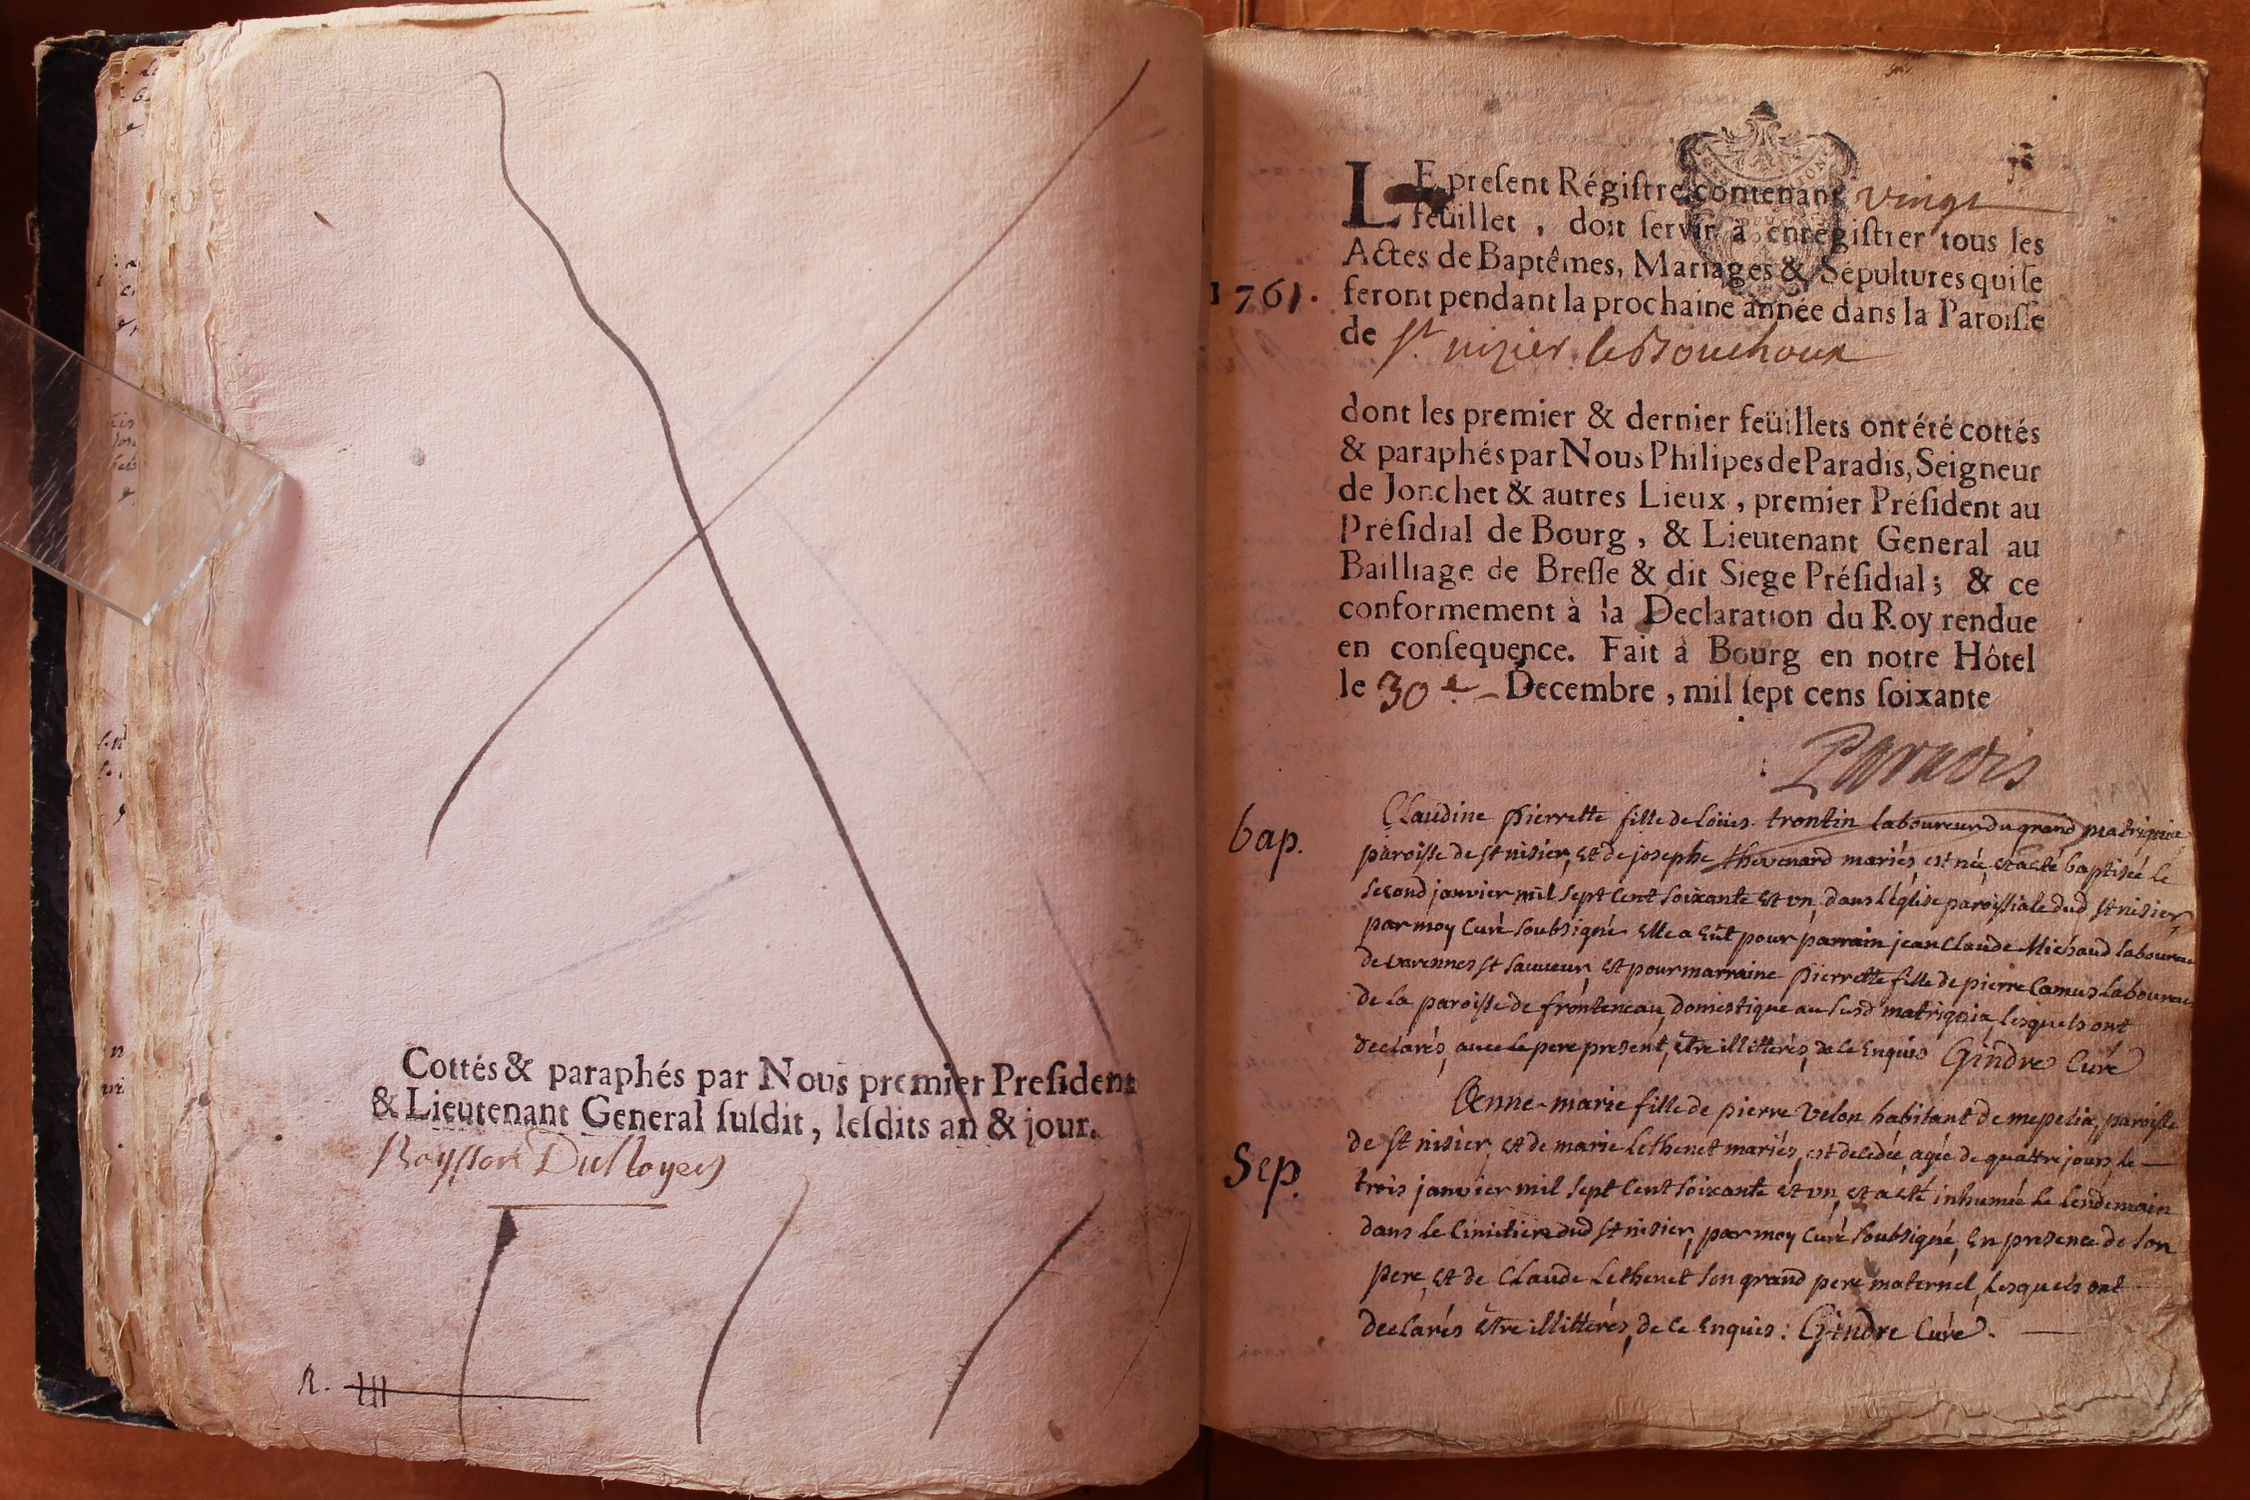 Cottés & paraphés par Nous premier Preſident
& Lieutenant General ſuſdit, leſdits an & jour.
R.
LE preſent Régiſtre contenant vingt
feüillet, doit ſervir à enregiſtrer tous les
Actes de Baptêmes, Mariages & Sépultures qui ſe
1761. feront pendant la prochaine année dans la Paroiſſe
de St nizier le Bouchoux
dont les premier & dernier feüillets ont été cottés
& paraphés par Nous Philipes de Paradis, Seigneur
de Jonchet & autres Lieux, premier Préſident au
Préſidial de Bourg, & Lieutenant General au
Bailliage de Breſſe & dit Siege Préſidial; & ce
conformement à la Declaration du Roy rendue
en conſequence. Fait à Bourg en notre Hôtel
le 30e Decembre, mil ſept cens ſoixante
Paradis
bap.
Claudine pierrette fille de loüis trontin laboureur du grand matrignia
paroisse de st nisier, et de josephe thevenard mariés, est née, et a eté baptisée le
second janvier mil sept cent soixante et un, dans l'église paroissiale dud st nisier,
par moy curé soubsigné elle a eüt pour parrain jean claude Michaud laboureur
de varennes st sauveur, et pour marraine pierrette fille de pierre Camus laboureur
de la paroisse de fronteneau, domestique au susd matrignia, lesquels ont
declarés, avec le pere present, être illitterés, de ce enquis Gindre Curé
Sep.
Denne-marie fille de pierre Velon habitant de mepelia, paroisse
de st nisier, et de marie Lethenet mariés, est decedée, agée de quattre jours, le
trois janvier mil sept cent soixante et un, et a eté inhumée le lendemain
dans le cimitiere dud st nisier, par moy curé soubsigné, en presence de son
pere, et de Claude Lethenet son grand pere maternel, lesquels ont
declarés être illitterés, de ce enquis: Gindre Curé.